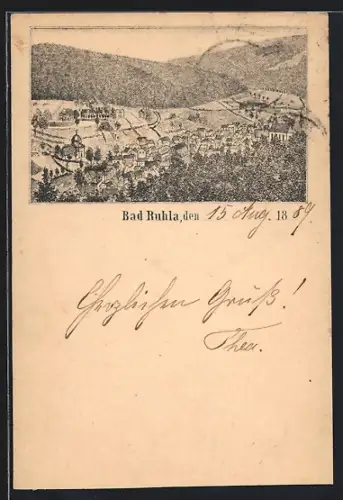 Bad Ruhla, den 15 Aug. 1889
Herzlichen Gruß!
Thea.